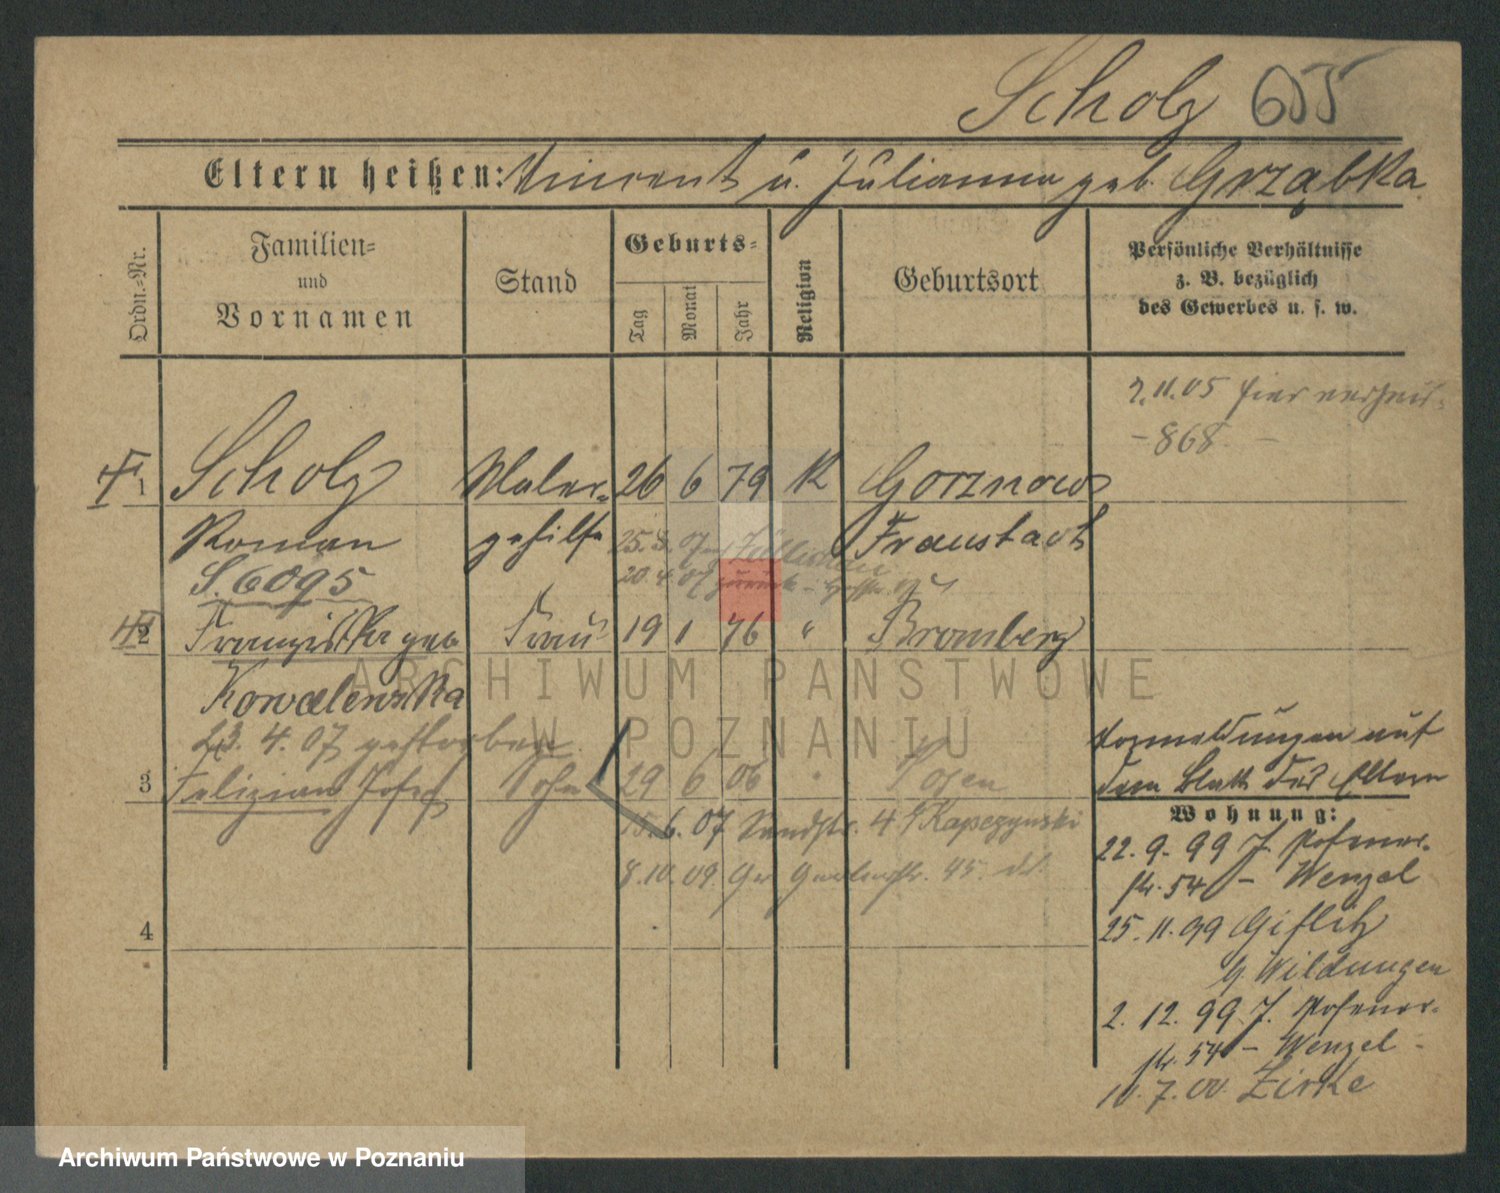 Scholz 655
Eltern heißen: Vincent u. Julianna geb. Grząbka
Ordn.-Nr.
Familien-
und
Vornamen
Stand
Geburts-
Tag
Monat
Jahr
Religion
Geburtsort
Persönliche Verhältnisse
z. B. bezüglich
des Gewerbes u. s. w.
2.11.05 hier
- 868 -
1 Scholz Maler- 26 6 79 K Gorznow
Roman gehilfe Fraustadt
25.3.07
S. 6095
20.4.07 zurück
2 Franziska geb Frau 19 1 76 " Bromberg
Kowalewska
23. 4. 07 gestorben
3 Felizian Josef Sohn 29 6 06 " Posen
15.6.07 Sandstr. 4 b/ Kapczynski
8.10.09 Gr Gerberstr. 45.
4
Vormeldungen auf
dem Blatt des Eltern
Wohnung:
22. 9. 99 J. Posener-
str. 54 - Wenzel
25. 11. 99
b. Wildungen
2. 12. 99 J. Posener-
str. 54 - Wenzel -
10. 7. 00. Zirke
ARCHIWUM PAŃSTWOWE
W POZNANIU
Archiwum Państwowe w Poznaniu